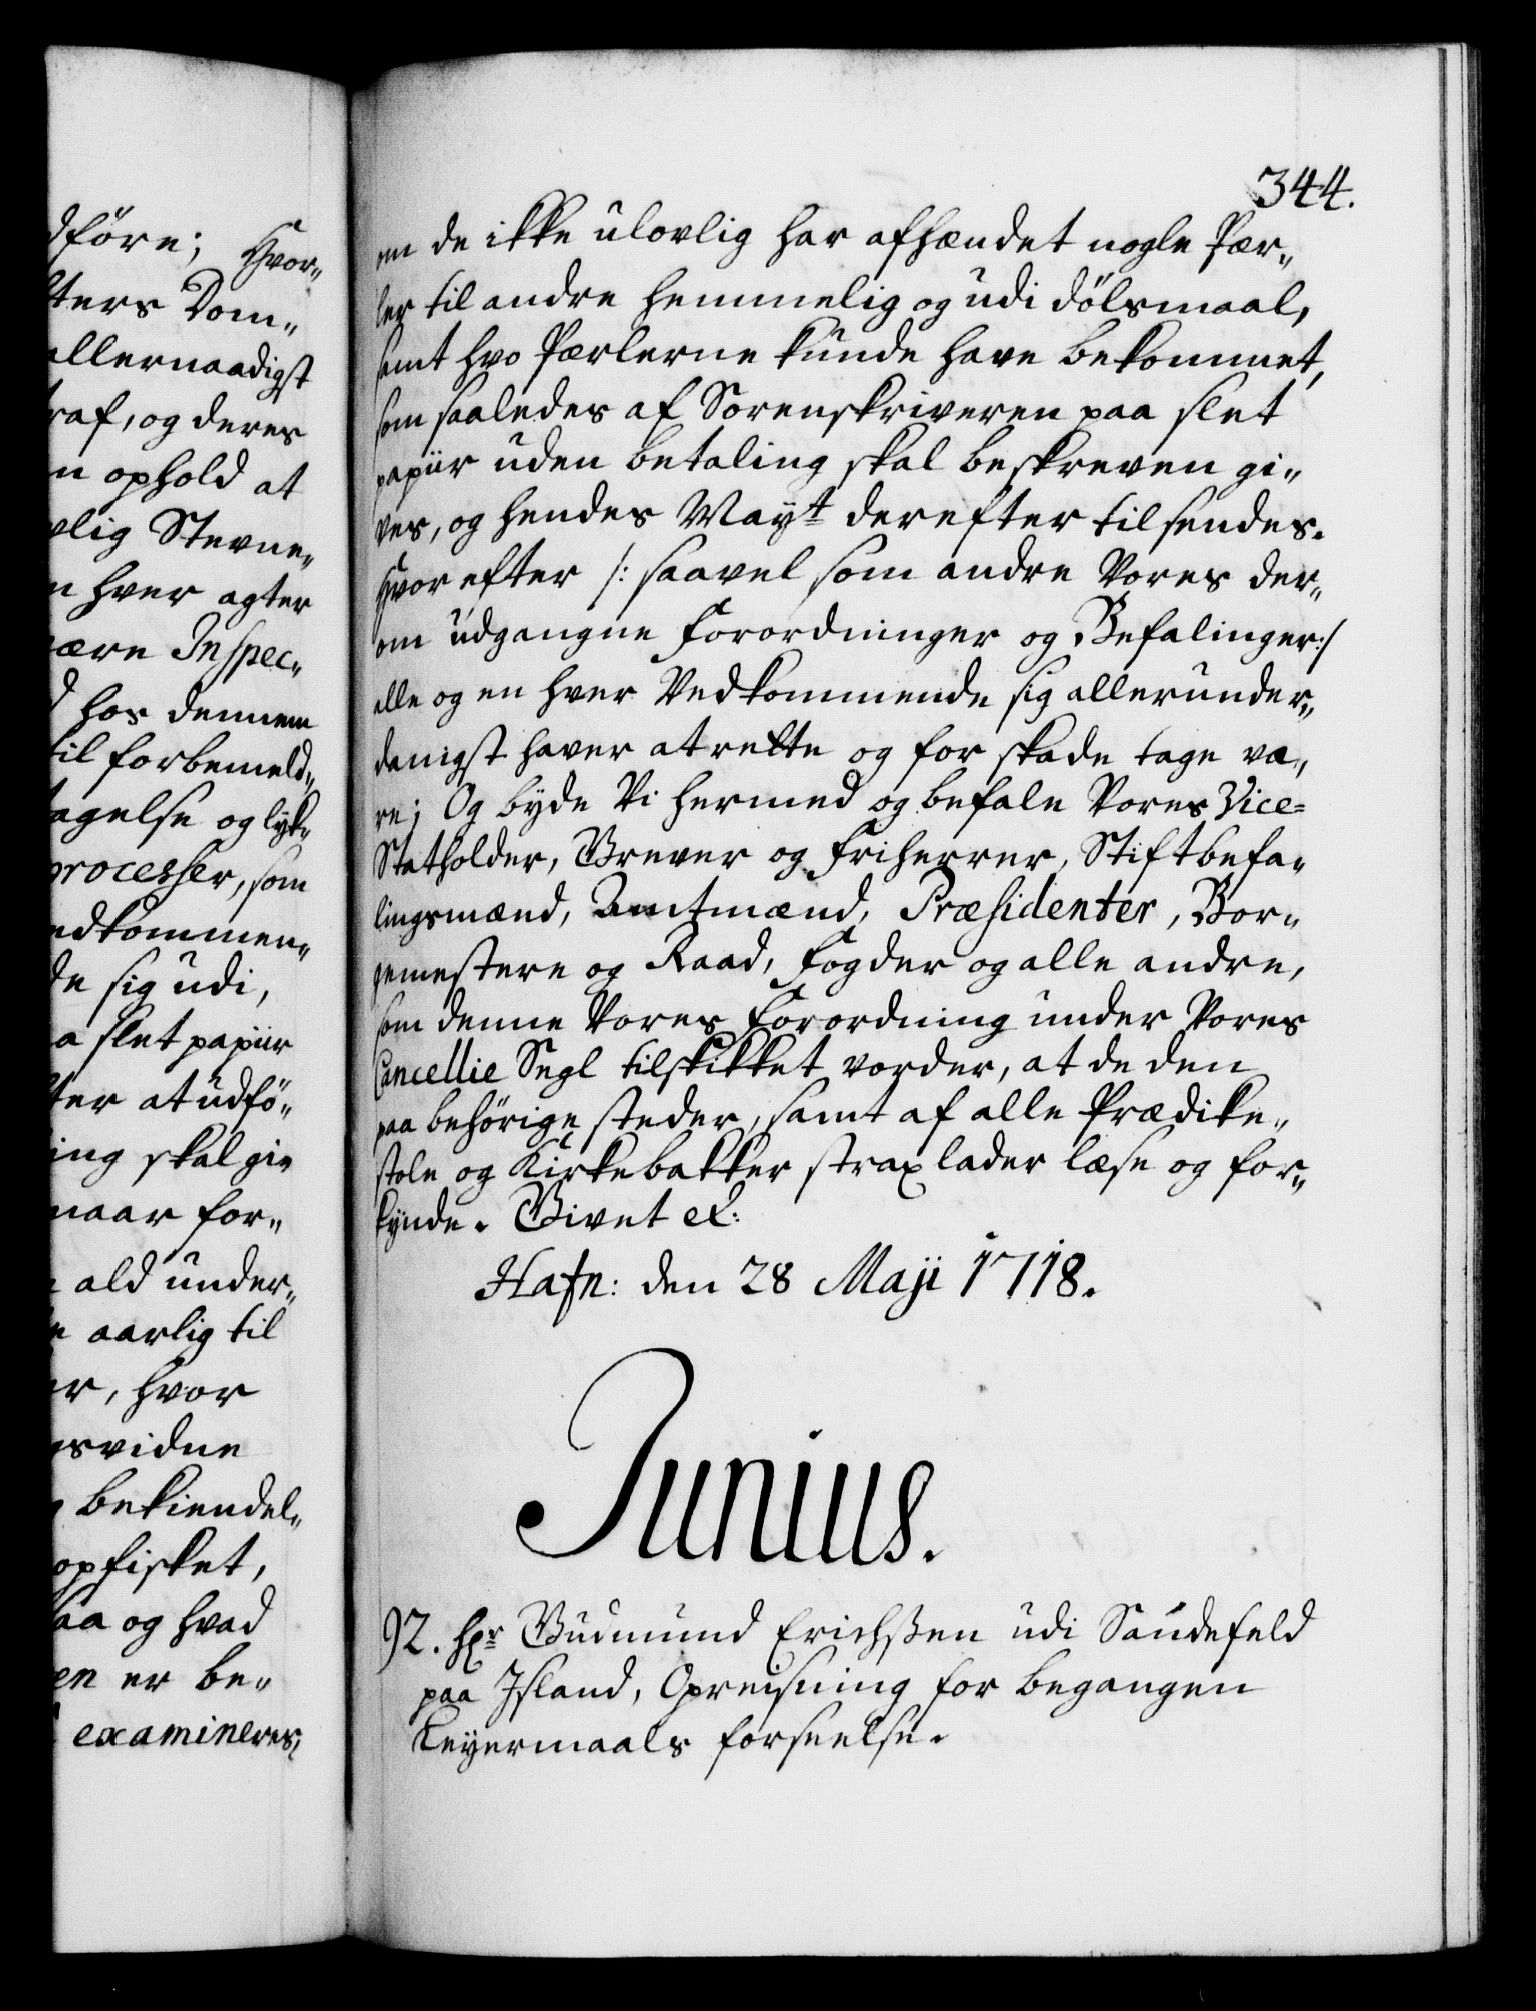 dföre; Hvor„
ters Dom„
allernaadigst
raf, og deres
n ophold at
vlig Stevne„
n hver agter
være Inspec„
d hos dennem
til forbemeld„
tagelse og lyk„
processer, som
edkommen„
de sig udi,
a slet papiir
ter at udfö„
ing skal gi„
naar for„
ald under„
e aarlig til
er, hvor
gsvidne
bekiendel„
opfisket,
saa og hvad
en er be„
examineres,
344.
om de ikke ulovlig har afhændet nogle Pær„
ler til andre hemmelig og udi dölsmaal,
samt hvo Pærlerne kunde have bekommet,
som saaledes af Sorenskriveren paa slet
papiir uden betaling skal beskreven gi„
ves, og hendes Mayt derefter tilsendes.
Hvorefter /: saavel som andre Vores der„
om udgangne Forordninger og Befalinger:/
alle og en hver Vedkommende sig allerunder„
danigst haver at rette og for skade tage va„
re; Og byde Vi hermed og befale Vores Vice=
Statholder, Grever og Friherrer, Stiftbefa„
lingsmænd, Amtmænd, Præsidenter, Bor„
gemestere og Raad, Fogder og alle andre,
som denne Vores Forordning under Vores
Cancellie Segl tilskikket vorder, at de den
paa behörige steder, samt af alle Prædike„
stole og Kirkebakker strax lader læse og for„
kynde. Givet etc:
Hafn: den 28 Maji 1718.
Junius.
92. Hr Gudmund Erichssen udi Saudefeld
paa Island, Opreisning for begangen
Leyermaals forseelse.